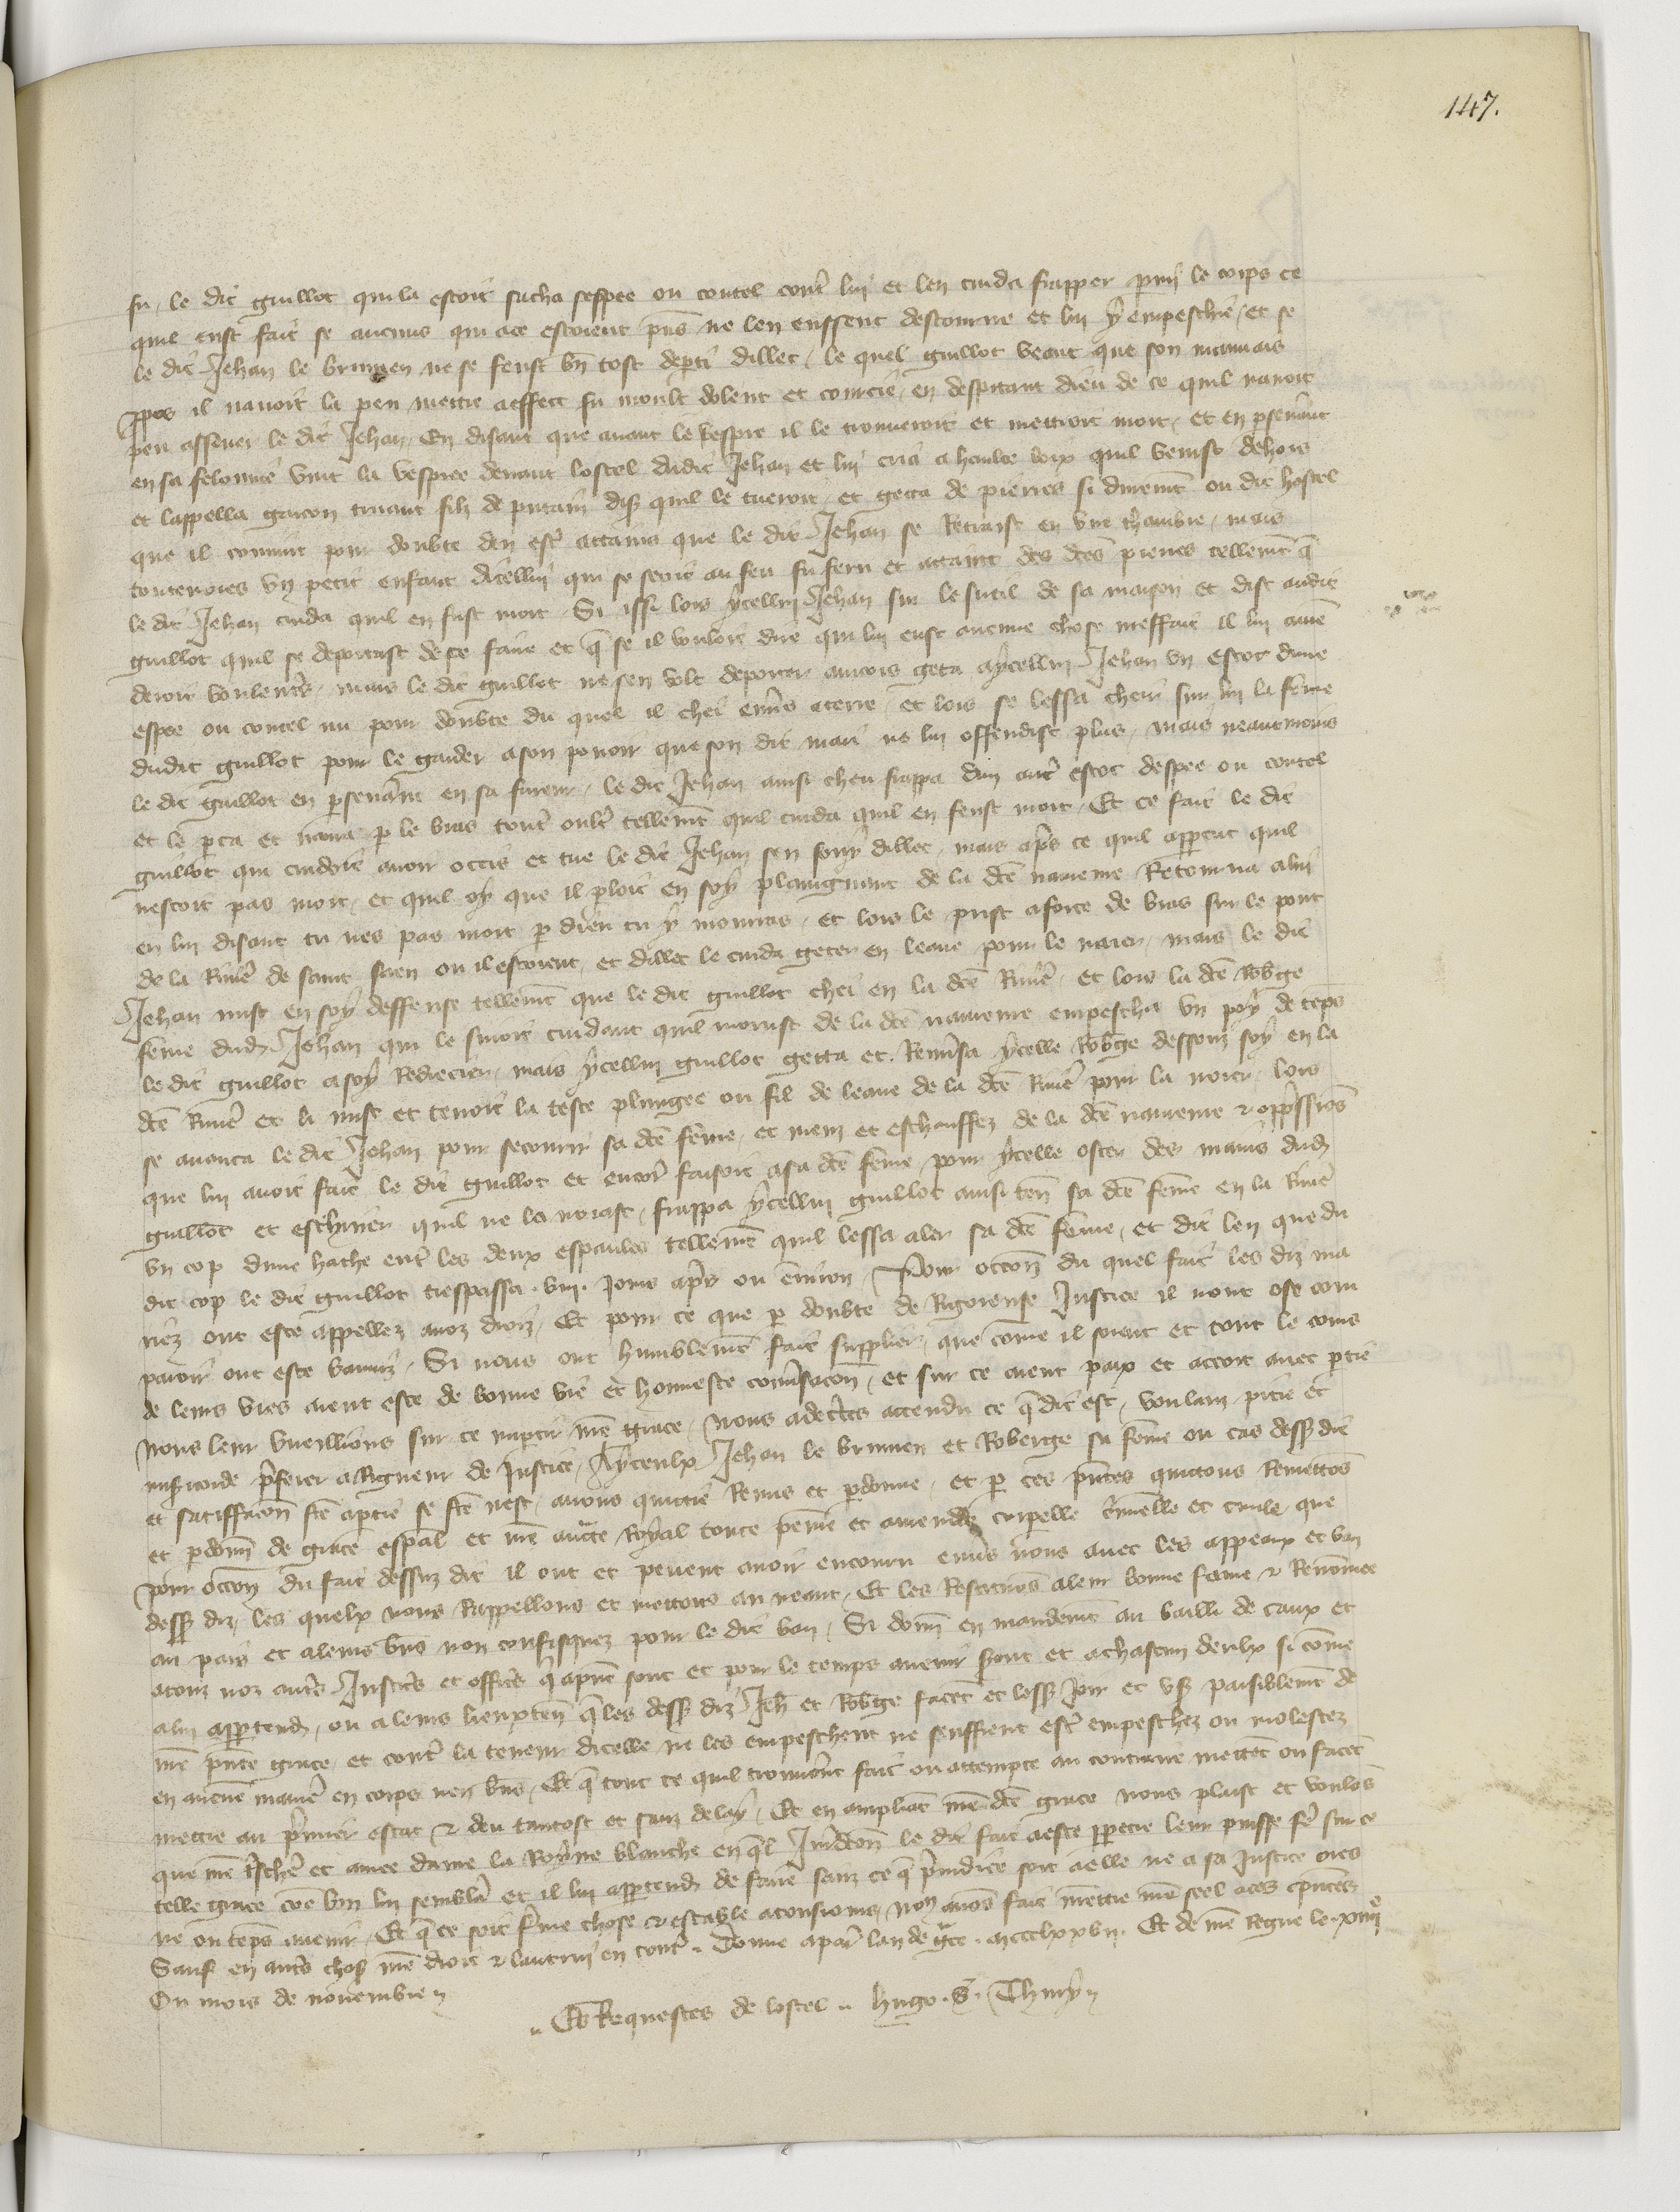 147.
fu, le dit guillot qui la estoit sacha sespee ou coutel contr lui et len cuida frapper parmi le corps ce
quil eust fait se aucuns qui ace estoient pns ne len eussent destourne et lui y empeschie, et se
le dit Jehan le brumen ne se feust bn tost departi dillec, le quel guillot veant que son mauvais
ppos il navoit la peu mettre aeffect fu moult dolent et courcie, en despitant dieu de ce quil navoit
peu assener le dit Jehan, En disant que avant le vespre il le trouveroit et mettroit mort, et en psevant
en sa felonnie vint la vespree devant lostel dudit Jehan et lui cria a haulte voix quil venist dehors
et lappella garcon truant filz de putain dist quil le tueroit, et getta de pierres si durement ou dit hostel
que il convint pour doubte den estr attains que le dit Jehan se Retraist en une chambre, mais
toutevoies un petit enfant dicellui qui se seoit au feu fu feru et attaint des dces pierres tellemt q
le dit Jehan cuida quil en fust mort, Si issi lors ycellui Jehan sur le sueil de sa maison et dist audit
guillot quil se deportast de ce faire et q se il vouloit dire qui lui eust aucune chose meffait il lui amen
deroit voulentrs, mais le dit guillot ne sen volt deporter ancois geta aycellui Jehan un estoc dune
espee ou coutel nu pour doubte du quel il chei envrs aterre, et lors se lessa cheir sur lui la feme
dudit guillot pour le garder ason povoir que son dit mari ne lui offendist plus, mais neantmoins
le dit guillot en psevant en sa fureur, le dit Jehan ainsi cheu frappa dun autr estoc despee ou coutel
et le pca et navra p le bras tout oultr tellemt quil cuida quil en feust mort, Et ce fait le dit
guillot qui cuidoit avoir occis et tue le dit Jehan sen fouy dillec, mais aprs ce quil apperceut quil
nestoit pas mort, et quil oy que il ploit en soy plaingnant de la dce navreure Retourna alui
en lui disant tu nes pas mort p dieu tu y mourras, et lors le prist aforce de bras sur le pont
de la Rivier de saint saen ou il estoient, et dillec le cuida geter en leaue pour le naier, mais le dit
Jehan mist en soy deffense tellemt que le dit guillot chei en la dce Rivier, et lors la dce Robge
feme dud Jehan qui le suioit cuidant quil morust de la dce navreure empescha un poy de teps
le dit guillot asoy Redrecier, mais ycellui guillot getta et Renvsa ycelle Robge dessouz soy en la
dce Rivier et li mist et tenoit la teste plungee ou fil de leaue de la dce Rivier pour la noier, lors
se avanca le dit Jehan pour secourir sa dce feme, et meu et eschauffez de la dce navreure & oppssions
que lui avoit fait le dit guillot et encor faisoit asa dce feme, pour ycelle oster des mains dud
guillot et eschiver quil ne la noiast, frappa ycellui guillot ainsi ten sa dce feme en la Rivier
un cop dune hache entr les deux espaules tellemt quil lessa aler sa dce feme, et dit len que du
dit cop le dit guillot trespassa .viii. jours aprs ou environ, Pour occon du quel fait les diz ma
riez ont este appellez anoz droiz, Et pour ce que p doubte de Rigoreuse Justice il nont ose com
paroir ont este banniz, Si nous ont humblemt fait supplier, que come il soient et tout le cours
de leurs vies aient este de bonne vie et honneste convsacon, et sur ce aient paix et accort avec partie
Nous leur vueillions sur ce impartir nre grace, Nous adectes attendu ce q dit est, voulans pitie et
misicorde prferer a Rigueur de Justice, Ayceulx Jehan le brumen et Roberge sa feme ou cas dessus dit
et satiffacon fte aptie se fte nest, avons quictie Remis et pdonne, et p ces pntes quittons Remettos
et pdonn de grace espal et nre aucte Royal toute peine et amende corpelle crimelle et civile que
pour occon du fait dessus dit il ont et pevent avoir encouru envrs nous avec les appeaux et ban
dess diz, les quelx nous Rappellons et mettons au neant, Et les Restituos aleur bonne fame & Renomee
au pais et aleurs bns non confisquez pour le dit ban, Si donn en mandemt au bailli de caux et
atouz noz autrs Justicrs et officrs q apnt sont et pour le temps avenir sront et achascun deulx si come
alui appartend, ou aleurs lieuxten q les dess diz Jeh et Robge facet et less joir et us paisiblemt de
nre pnte grace, et contr la teneur dicelle ne les empeschent ne seuffrent estr empeschez ou molestez
en aucune manier en corps nen bns, Et q tout ce quil trouvront fait ou attempte au contraire mettet ou facet
mettre au prmier estat & deu tantost et sanz delay, Et en ampliat nre dce grace nous plaist et voulos
que nre treschier et amee dame la Royne blanche en ql Juridcon le dit fait aeste ppetre leur puisse fer sur ce
telle grace coe bon lui semblra et il lui appartend de faire sanz ce q prjudice soit aelle ne a sa Justice ores
ne ou teps avenir, Et q ce soit ferme chose & estable atousjours, Noy avos fait mettre nre seel aces pntes
Sauf en autrs choss nre droit & lautrui en contr. Donne apar lan de grace .mccclxxvii. Et de nre Regne le .xiiiie
Ou mois de novembre
Es Requestes de lostel. hugo .S. Thury